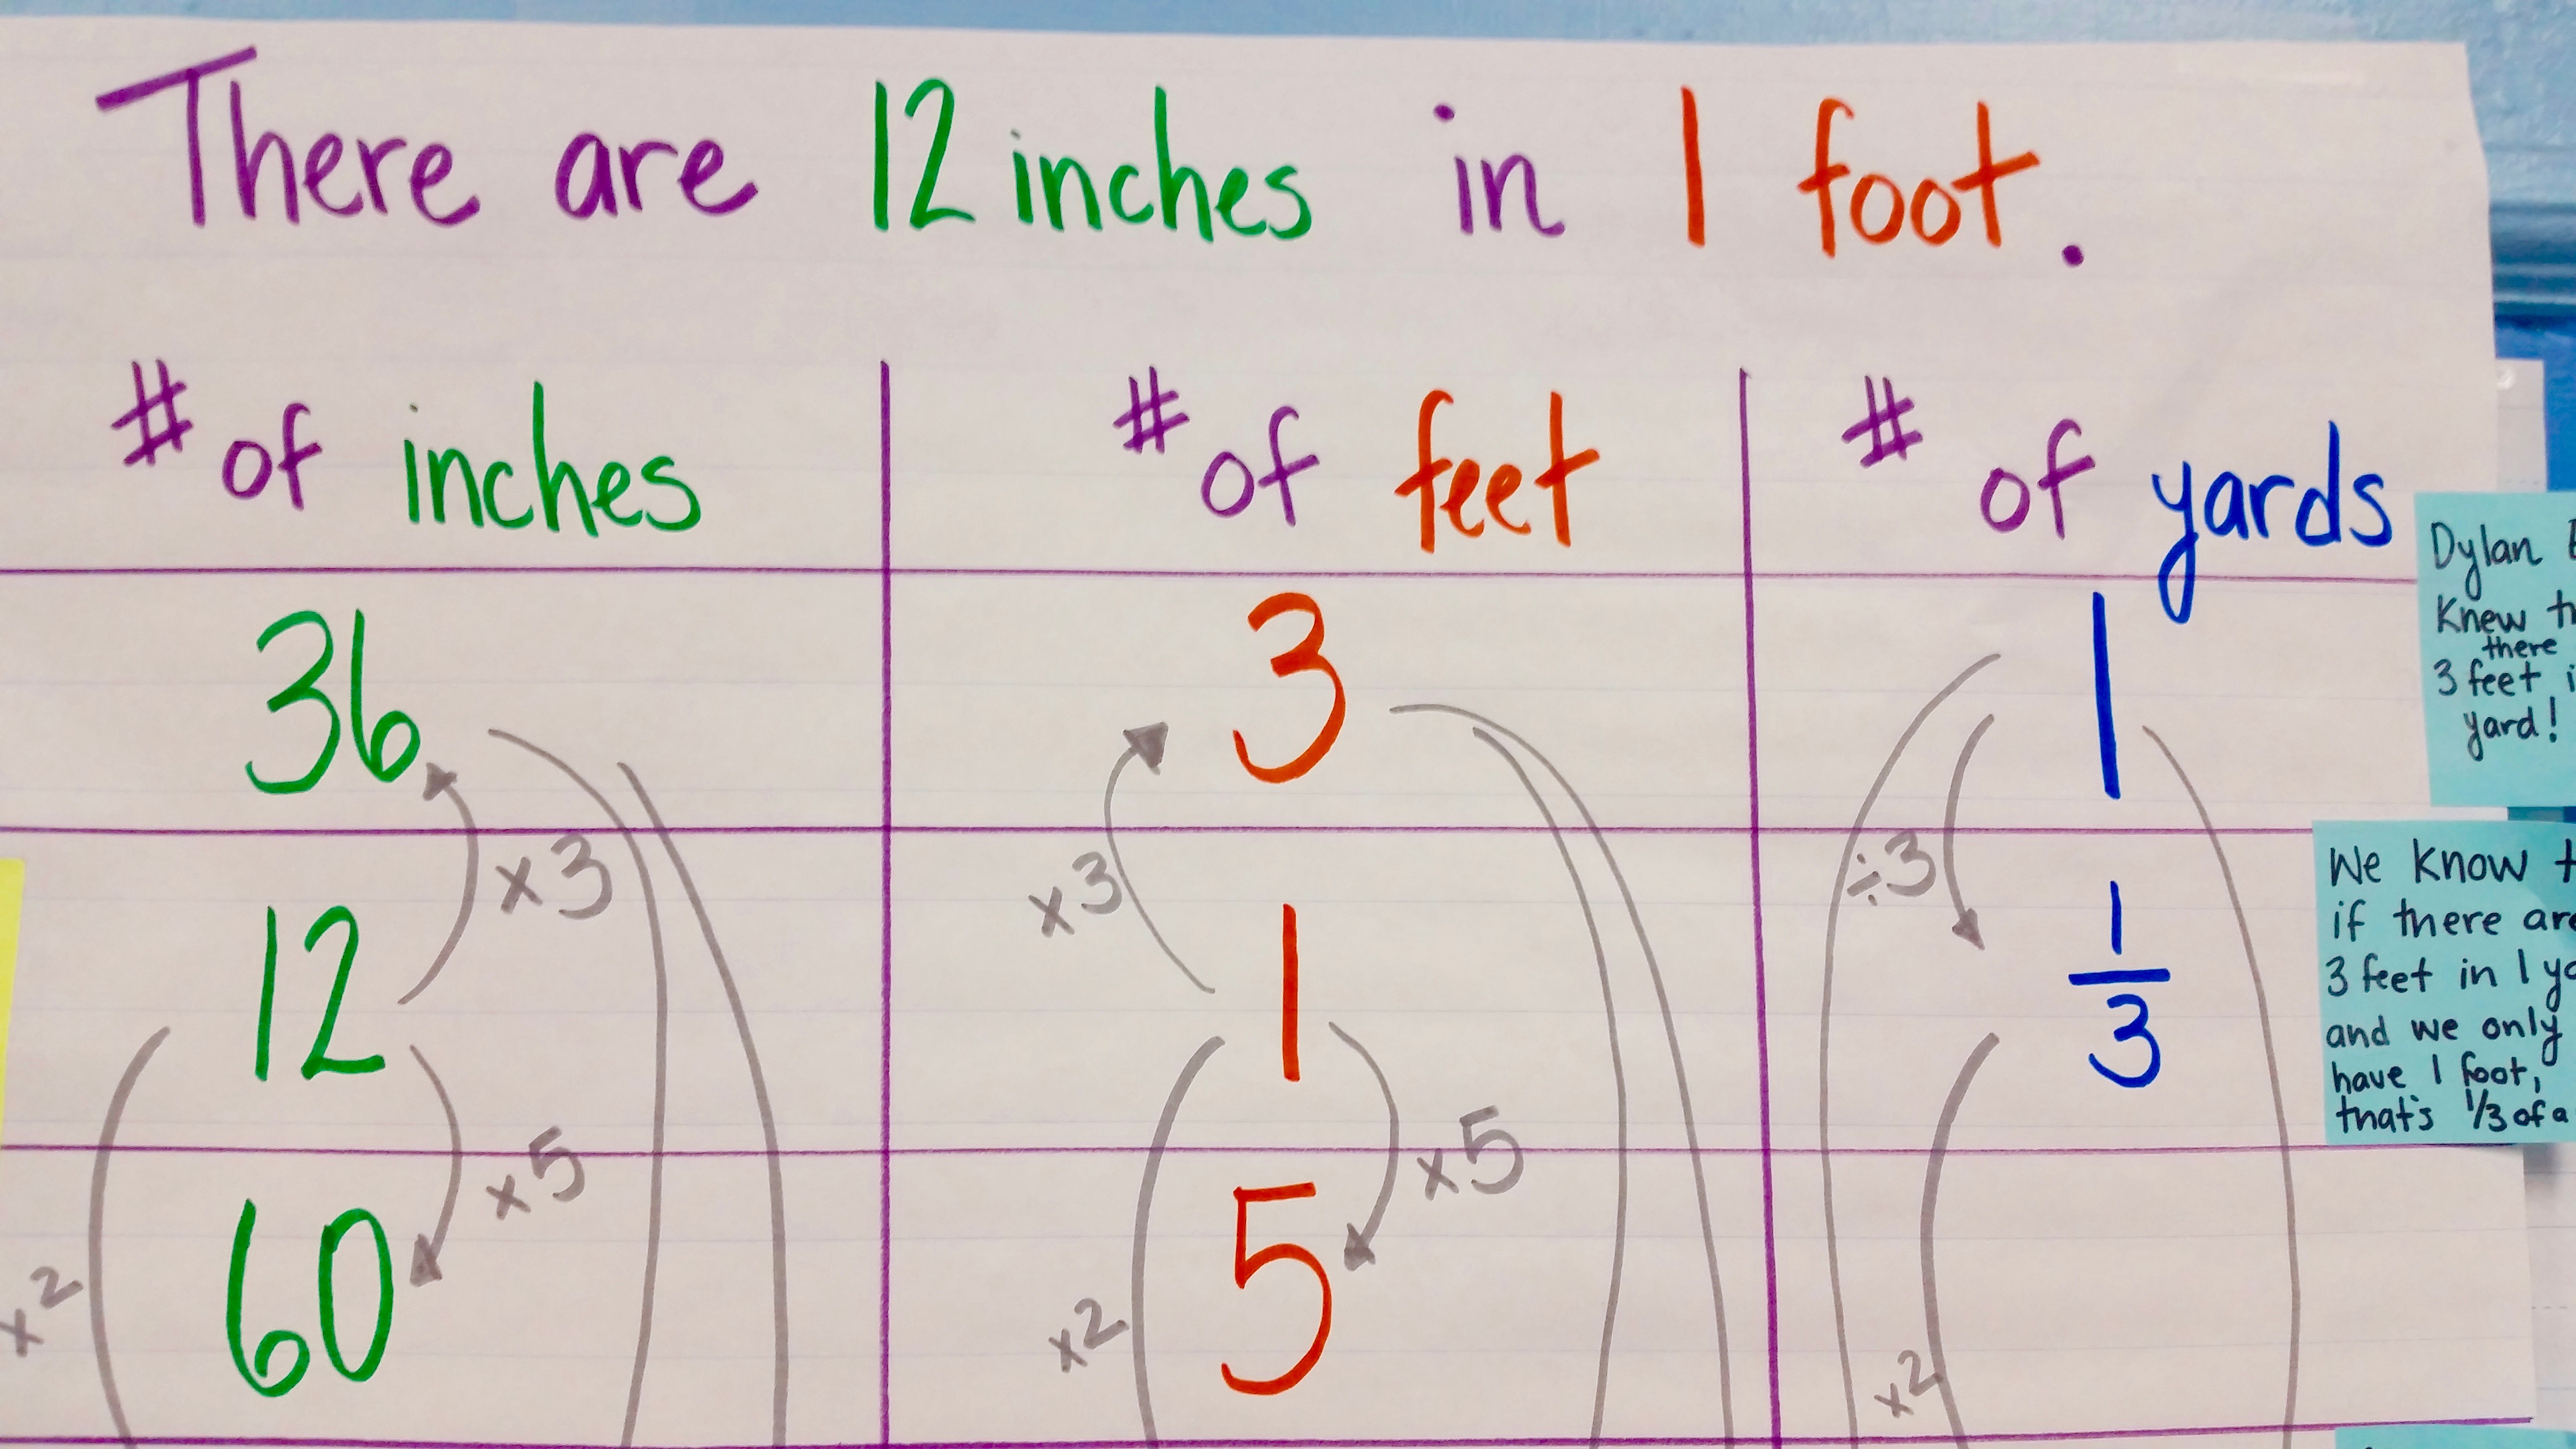 There are 12 inches in 1 foot.
# of inches # of feet # of yards
36 3 1
x3 x3 ÷3
12 1 1/3
x5 x5
60 5
x2 x2 x2
Dylan
Knew
there
3 feet
yard!
We know
if there are
3 feet in 1
and we only
have 1 foot,
that's 1/3 of a